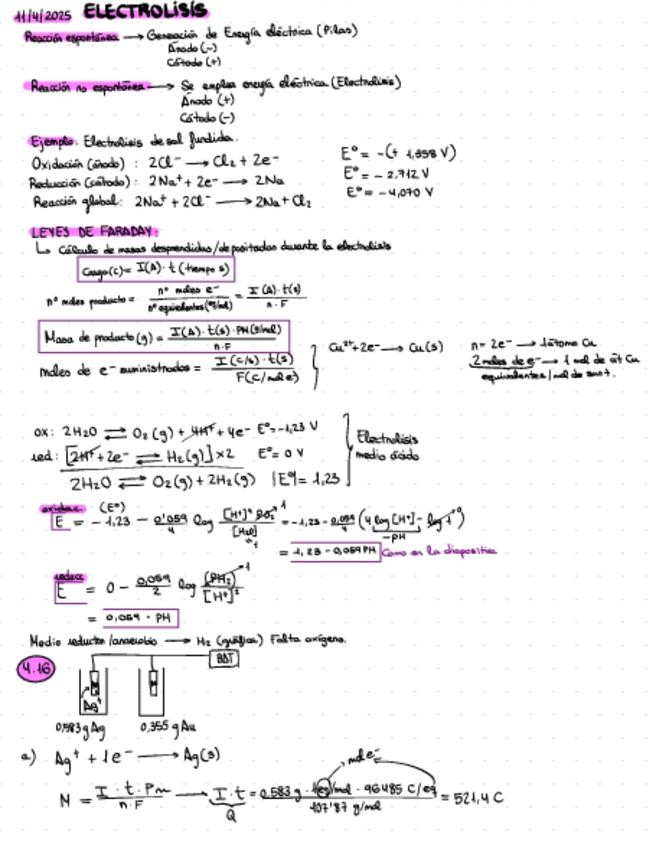 11/4/2025 ELECTROLISIS
Reacción espontánea → Generación de Energía eléctrica (Pilas)
Ánodo (-)
Cátodo (+)
Reacción no espontánea → Se emplea energía eléctrica (Electrolisis)
Ánodo (+)
Cátodo (-)
Ejemplo: Electrolisis de sal fundida.
Oxidación (ánodo) : 2Cl⁻ → Cl₂ + 2e⁻ E° = -(+ 1,358 V)
Reducción (cátodo) : 2Na⁺ + 2e⁻ → 2Na E° = - 2.712 V
Reacción global: 2Na⁺ + 2Cl⁻ → 2Na + Cl₂ E° = -4,070 V
LEYES DE FARADAY:
↳ Cálculo de masas desprendidas/depositadas durante la electrolisis
Carga (C) = I(A) · t (tiempo s)
nº moles producto = nº moles e⁻ / nº equivalentes (eq/mol) = I(A) · t(s) / n · F
Masa de producto (g) = I(A) · t(s) · PM (g/mol) / n · F
moles de e⁻ suministrados = I (C/s) · t(s) / F (C/mol e)
Cu²⁺ + 2e⁻ → Cu(s)
n = 2e⁻ → 1 átomo Cu
2 moles de e⁻ → 1 mol de át Cu
equivalentes/mol de sust.
ox: 2H₂O ⇌ O₂ (g) + 4H⁺ + 4e⁻ E° = -1,23 V
red: [2H⁺ + 2e⁻ ⇌ H₂(g)] x2 E° = 0 V
2H₂O ⇌ O₂(g) + 2H₂(g) |E°| = 1,23
Electrolisis
medio ácido
(E°)
E = -1,23 - 0'059/4 log [H⁺]⁴ PO₂ / [H₂O] = -1,23 - 0,059/4 (4 log [H⁺] - log 1)
-PH
= 1,23 - 0,059 PH Como en la diapositiva
E = 0 - 0,059/2 log (PH₂) / [H⁺]²
= 0,059 · PH
Medio reductor /anaerobio → H₂ (gráfica) Falta oxígeno.
4.16
BAT
Ag⁺
0,583 g Ag 0,355 g Au
a) Ag⁺ + 1e⁻ → Ag(s)
mol e⁻
M = I · t · Pm / n · F → I · t = 0,583 g · 1 eq/mol · 96485 C/eq / 107'87 g/mol = 521,4 C
Q